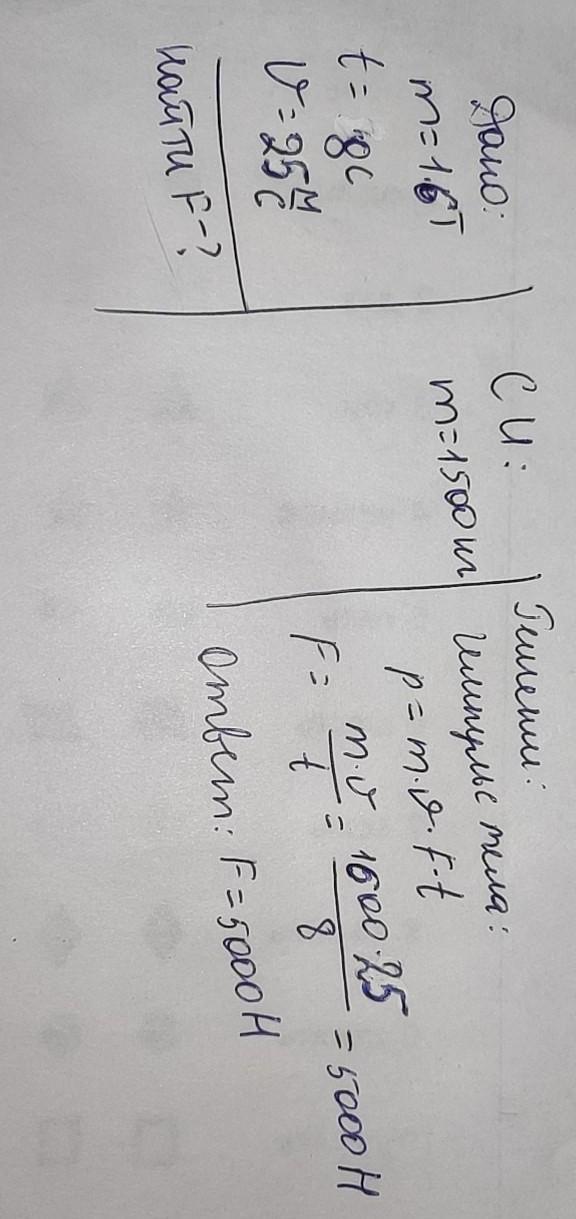 Дано:
m=1.6т
t= 8с
υ=25 м/с
Найти F-?
СИ:
m=1500 кг
Решении:
Импульс тела:
p=m·υ·F·t
F= m·υ/t = 1600·25/8 =5000Н
Ответ: F=5000Н